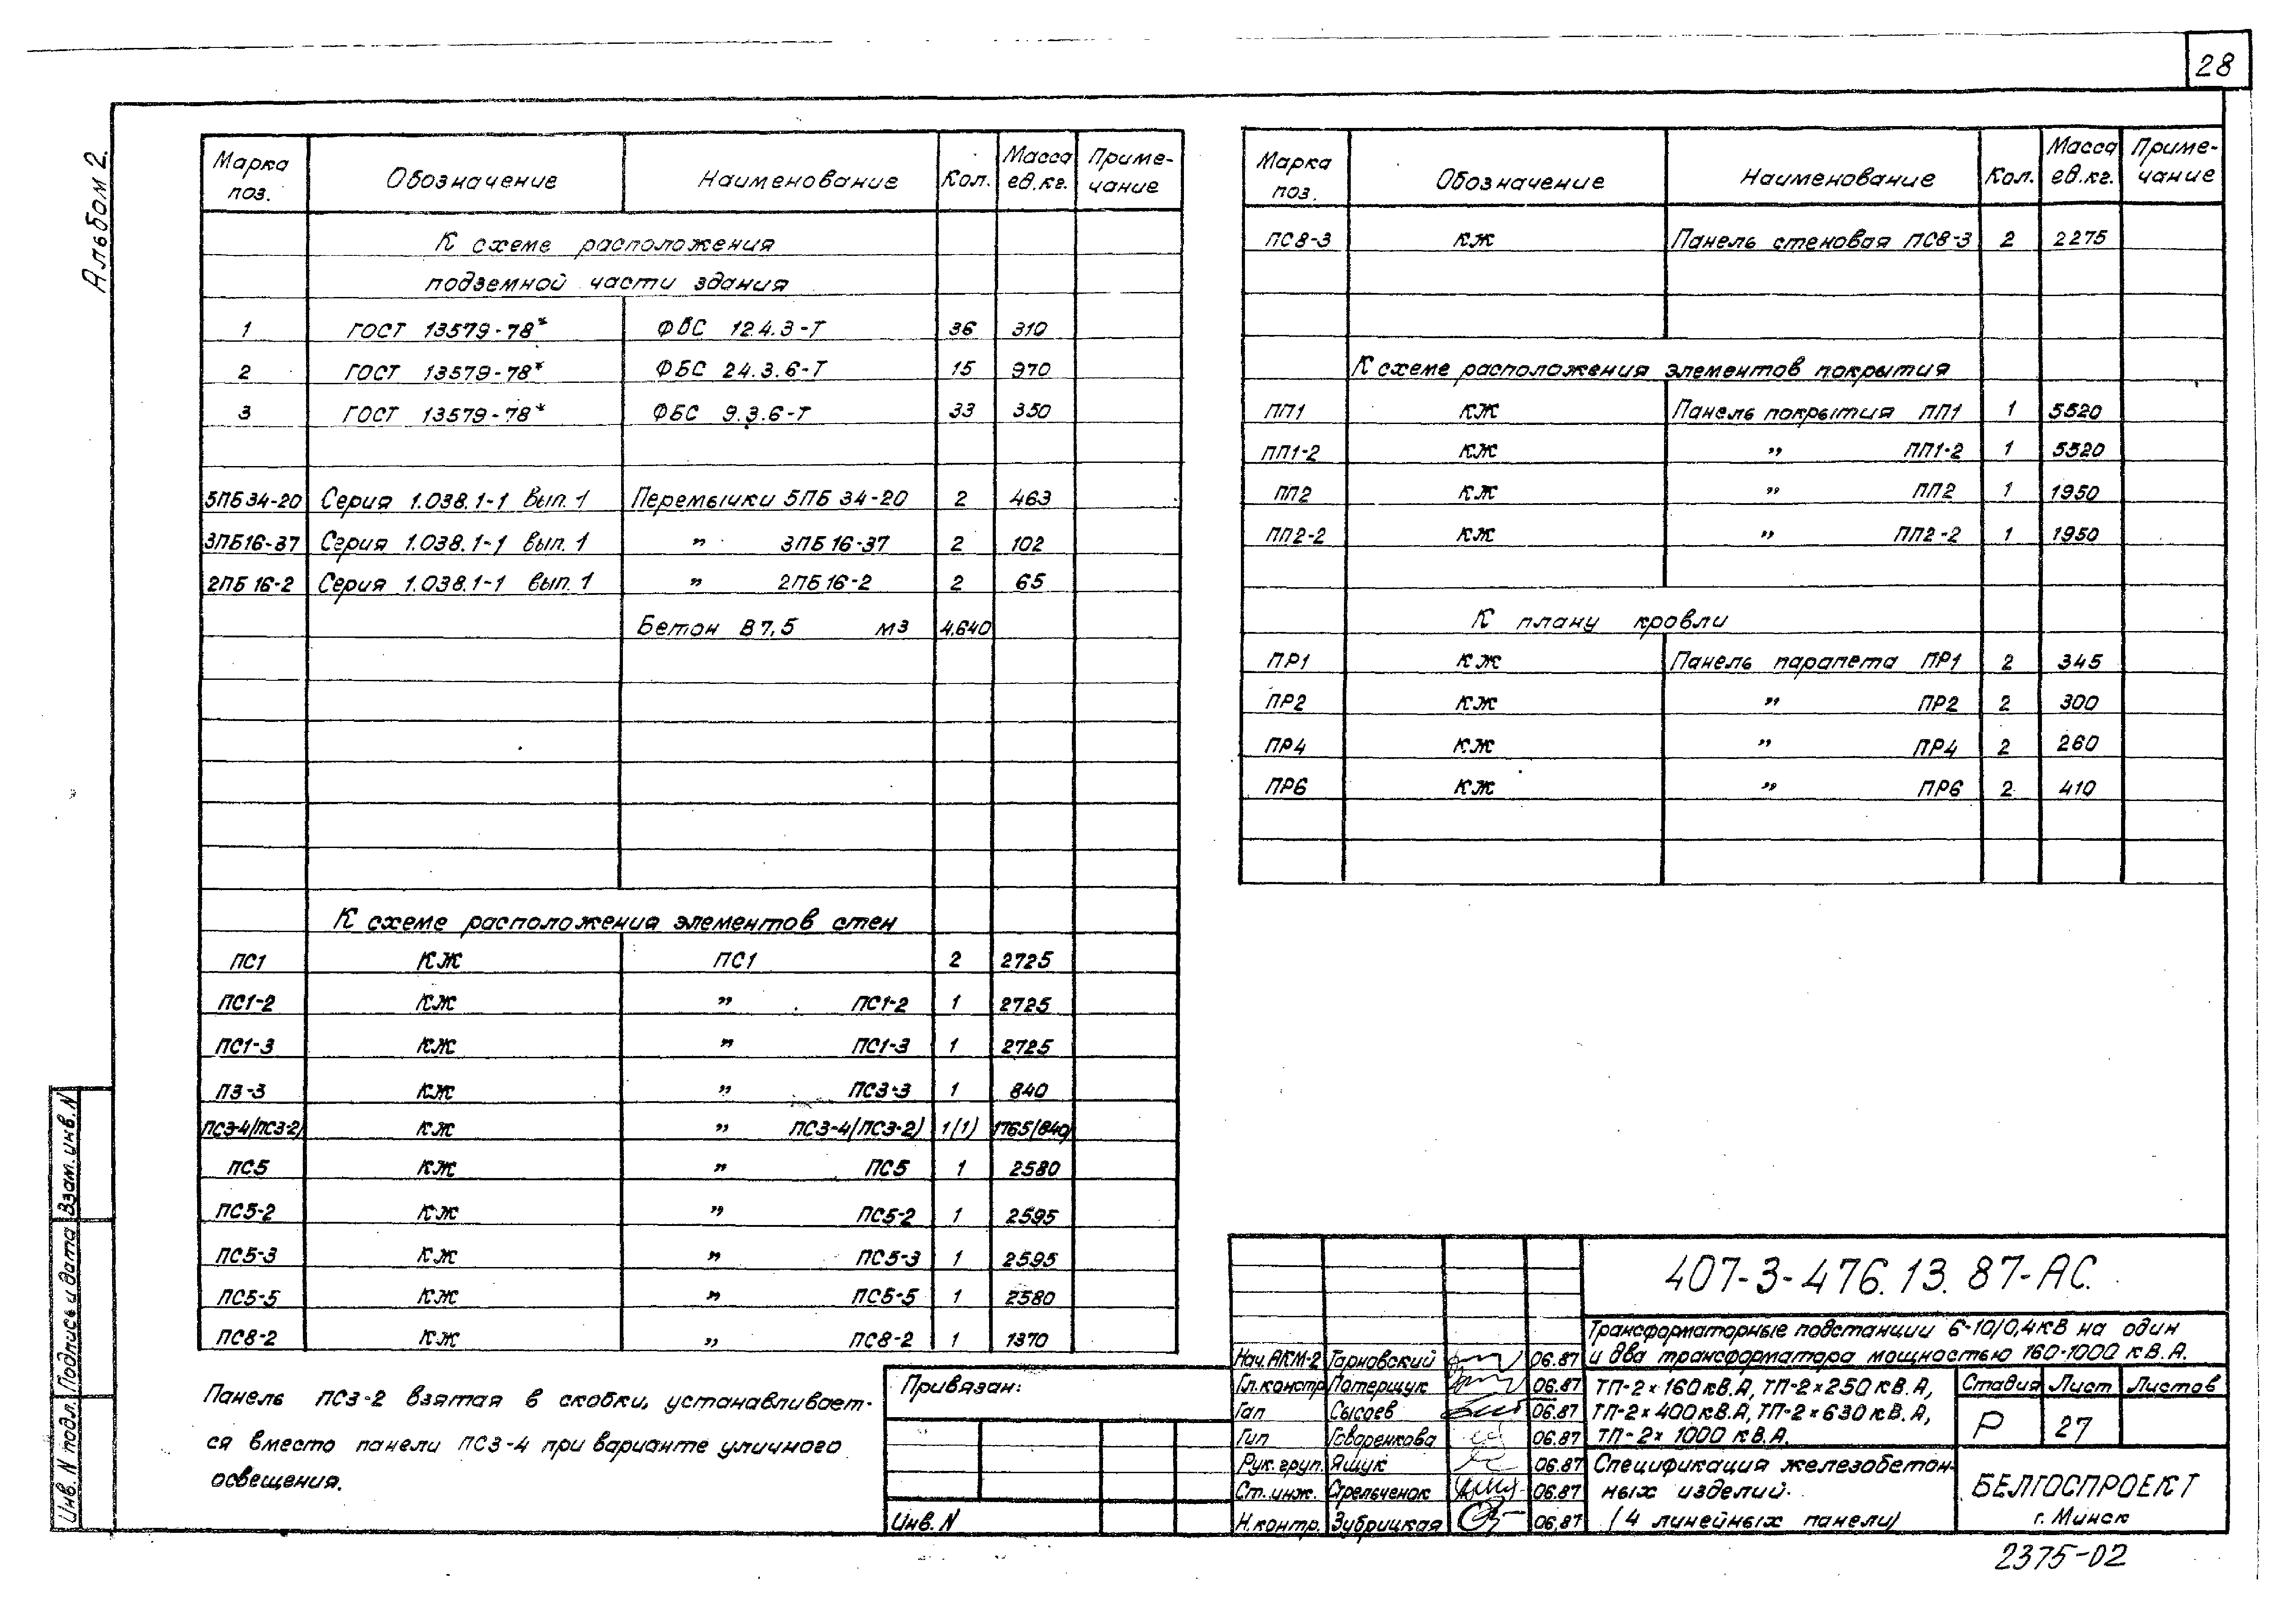 28
Альбом 2.
Марка поз. Обозначение Наименование Кол. Масса ед.кг. Примечание
К схеме расположения
подземной части здания
1 ГОСТ 13579-78* ФБС 12.4.3-Т 36 310
2 ГОСТ 13579-78* ФБС 24.3.6-Т 15 970
3 ГОСТ 13579-78* ФБС 9.3.6-Т 33 350
5ПБ34-20 Серия 1.038.1-1 Вып.1 Перемычки 5ПБ 34-20 2 463
3ПБ16-37 Серия 1.038.1-1 вып.1 „ 3ПБ16-37 2 102
2ПБ16-2 Серия 1.038.1-1 вып.1 „ 2ПБ16-2 2 65
Бетон В7,5 м3 4.640
К схеме расположения элементов стен
ПС1 КЖ ПС1 2 2725
ПС1-2 КЖ „ ПС1-2 1 2725
ПС1-3 КЖ „ ПС1-3 1 2725
П3-3 КЖ „ ПС3-3 1 840
ПС3-4/ПС3-2/ КЖ „ ПС3-4/ПС3-2) 1(1) 1765(840)
ПС5 КЖ „ ПС5 1 2580
ПС5-2 КЖ „ ПС5-2 1 2595
ПС5-3 КЖ „ ПС5-3 1 2595
ПС5-5 КЖ „ ПС5-5 1 2580
ПС8-2 КЖ „ ПС8-2 1 1370
Панель ПС3-2 взятая в скобки, устанавливает-
ся вместо панели ПС3-4 при варианте уличного
освещения.
Марка поз. Обозначение Наименование Кол. Масса ед.кг. Примечание
ПС8-3 КЖ Панель стеновая ПС8-3 2 2275
К схеме расположения элементов покрытия
ПП1 КЖ Панель покрытия ПП1 1 5520
ПП1-2 КЖ „ ПП1-2 1 5520
ПП2 КЖ „ ПП2 1 1950
ПП2-2 КЖ „ ПП2-2 1 1950
К плану кровли
ПР1 КЖ Панель парапета ПР1 2 345
ПР2 КЖ „ ПР2 2 300
ПР4 КЖ „ ПР4 2 260
ПР6 КЖ „ ПР6 2 410
Привязан:
Инв. N
407-3-476.13.87-АС.
Трансформаторные подстанции 6-10/0,4кВ на один
и два трансформатора мощностью 160-1000 кВ.А.
Нач.АКМ-2 Тарновский 06.87
Гл.констр Потерщук 06.87
Гап Сысоев 06.87
Гип Говоренкова 06.87
Рук.груп. Ящук 06.87
Ст.инж. Стрельченок 06.87
Н.контр. Зубрицкая 06.87
ТП-2×160кВ.А, ТП-2×250кВ.А,
ТП-2×400кВ.А, ТП-2×630кВ.А,
ТП-2×1000 кВ.А.
Стадия Лист Листов
Р 27
Спецификация железобетон-
ных изделий.
(4 линейных панели)
БЕЛГОСПРОЕКТ
г. Минск
2375-02
Инв. N подл. Подпись и дата Взам.инв. N